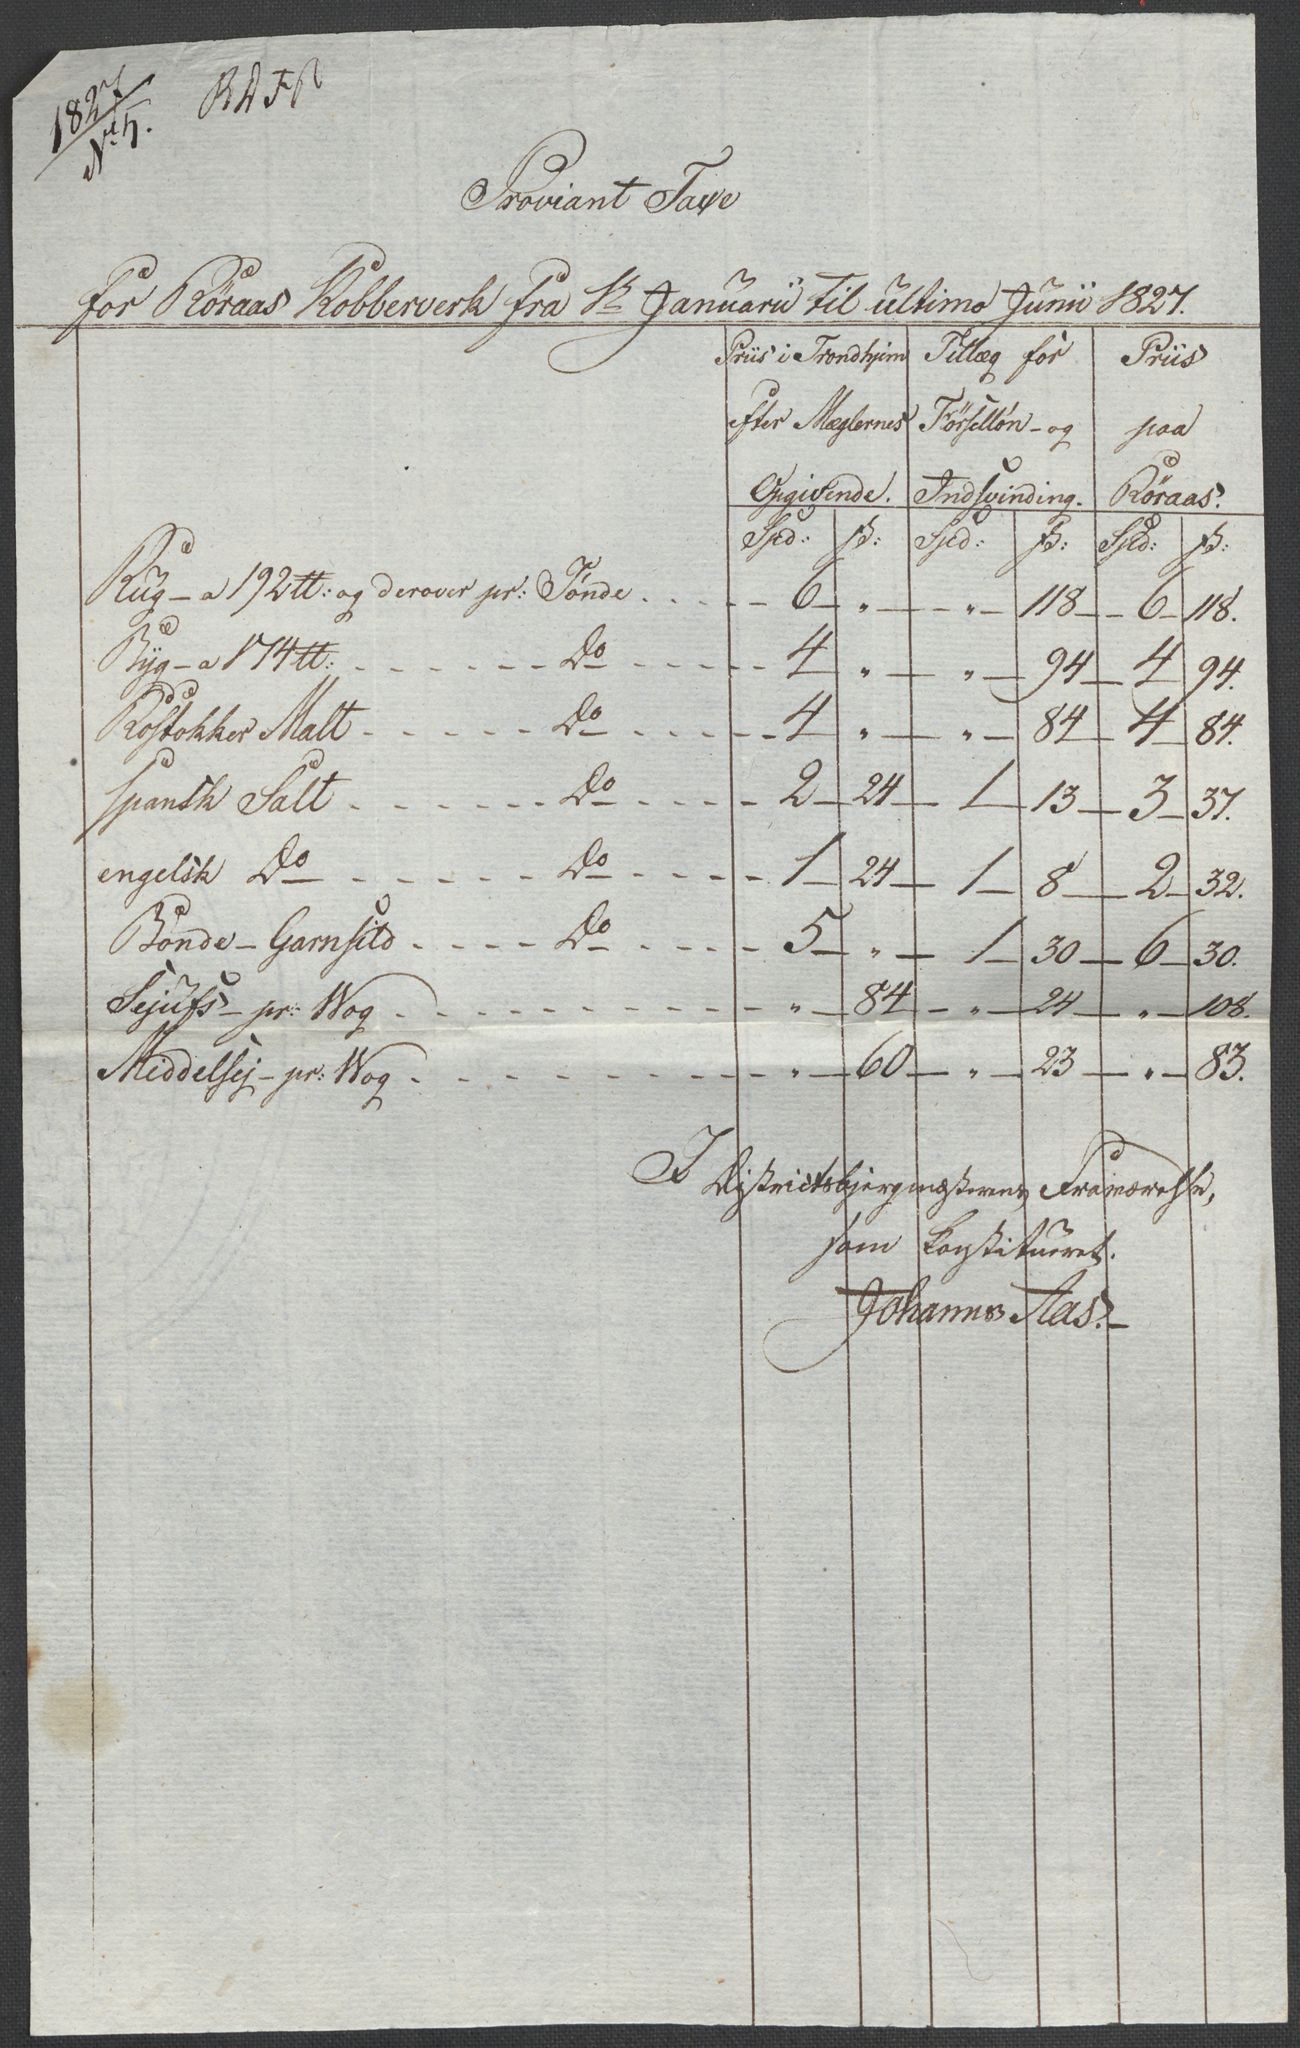 1827
No 5.
Proviant Taxe
for Röraas Kobberverk fra 1ste Januarii til ultimo Junii 1827.
Priis i Trondhjem Tillæg for Priis
efter Mæglernes Förselløn - og paa
Opgivende. Indsvinding. Röraas.
Spd: ß: Spd: ß: Spd: ß:
Rug - a 192 ℔: og derover pr: Tønde . . . . - - 6 - " - - " - 118 - - 6 - 118.
Byg - a 174 ℔: - - - - - - Do - - - - - 4 - " - - " - 94 - 4 - 94.
Rostokker Malt - - - - - - Do - - - - - 4 - " - - " - 84 - 4 - 84.
spansk Salt - - - - - - Do - - - - - 2 - 24 - 1 - 13 - 3 - 37.
engelsk Do - - - - - - Do - - - - - 1 - 24 - 1 - 8 - 2 - 32.
Bønde - Garnsild - - - - Do - - - - - 5 - " - 1 - 30 - 6 - 30.
Sejufs - pr: Wog - - - - - - - - - - " - 84 - " - 24 - " - 108.
Middelsej - pr: Wog - - - - - - - - - - " - 60 - " - 23 - " - 83.
I Districtsbjergmesterens Fraværelse,
som konstitueret.
Johannes Aas.